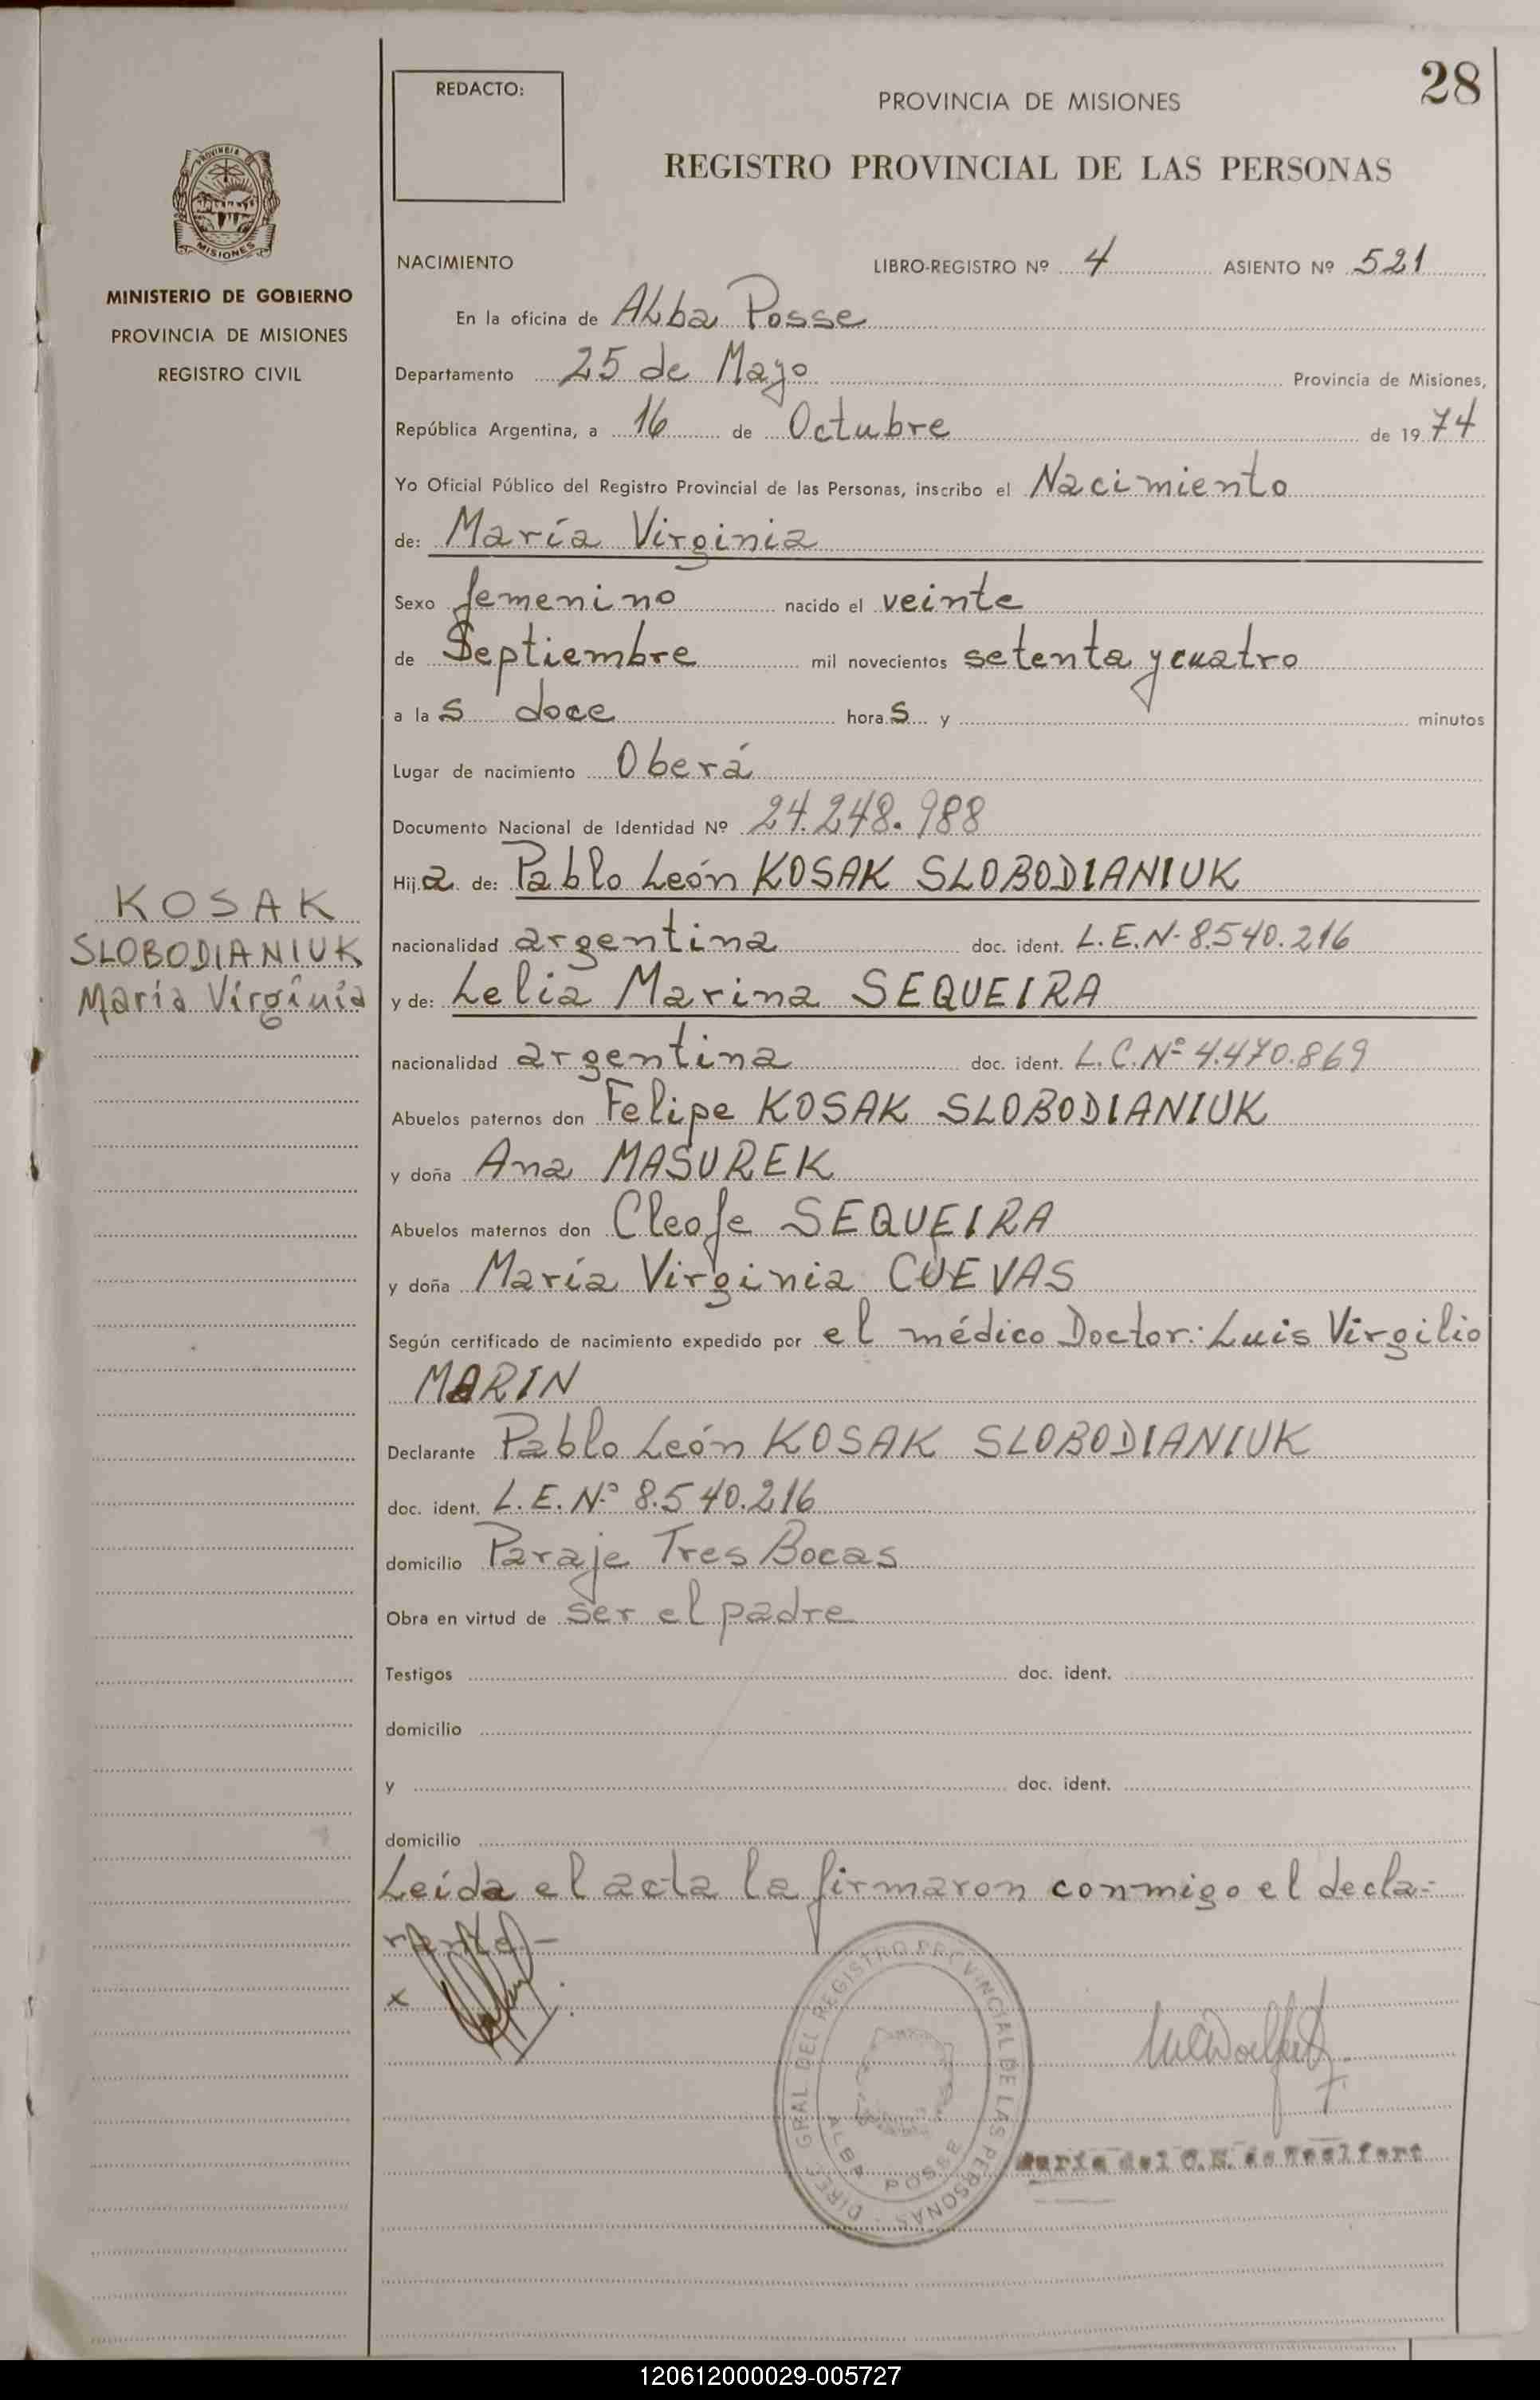 28
REDACTO:
PROVINCIA DE MISIONES
REGISTRO PROVINCIAL DE LAS PERSONAS
PROVINCIA DE
MISIONES
MINISTERIO DE GOBIERNO
PROVINCIA DE MISIONES
REGISTRO CIVIL
NACIMIENTO LIBRO-REGISTRO Nº 4 ASIENTO Nº 521
En la oficina de Alba Posse
Departamento 25 de Mayo Provincia de Misiones,
República Argentina, a 16 de Octubre de 1974
Yo Oficial Público del Registro Provincial de las Personas, inscribo el Nacimiento
de: María Virginia
Sexo femenino nacido el veinte
de Septiembre mil novecientos setenta y cuatro
a las doce horas y minutos
Lugar de nacimiento Oberá
Documento Nacional de Identidad Nº 24.248.988
Hija de: Pablo León KOSAK SLOBODIANIUK
KOSAK
SLOBODIANIUK
María Virginia
nacionalidad argentina doc. ident. L.E.N- 8.540.216
y de: Lelia Marina SEQUEIRA
nacionalidad argentina doc. ident. L.C.Nº 4.470.869
Abuelos paternos don Felipe KOSAK SLOBODIANIUK
y doña Ana MASUREK
Abuelos maternos don Cleofe SEQUEIRA
y doña María Virginia CUEVAS
Según certificado de nacimiento expedido por el médico Doctor: Luis Virgilio
MARIN
Declarante Pablo León KOSAK SLOBODIANIUK
doc. ident. L.E.Nº 8.540.216
domicilio Paraje Tres Bocas
Obra en virtud de ser el padre
Testigos doc. ident.
domicilio
y doc. ident.
domicilio
Leída el acta la firmaron conmigo el decla-
rante.-
x
DIREC. GRAL DEL REGISTRO PROVINCIAL DE LAS PERSONAS
ALBA POSSE
María del C.
120612000029-005727